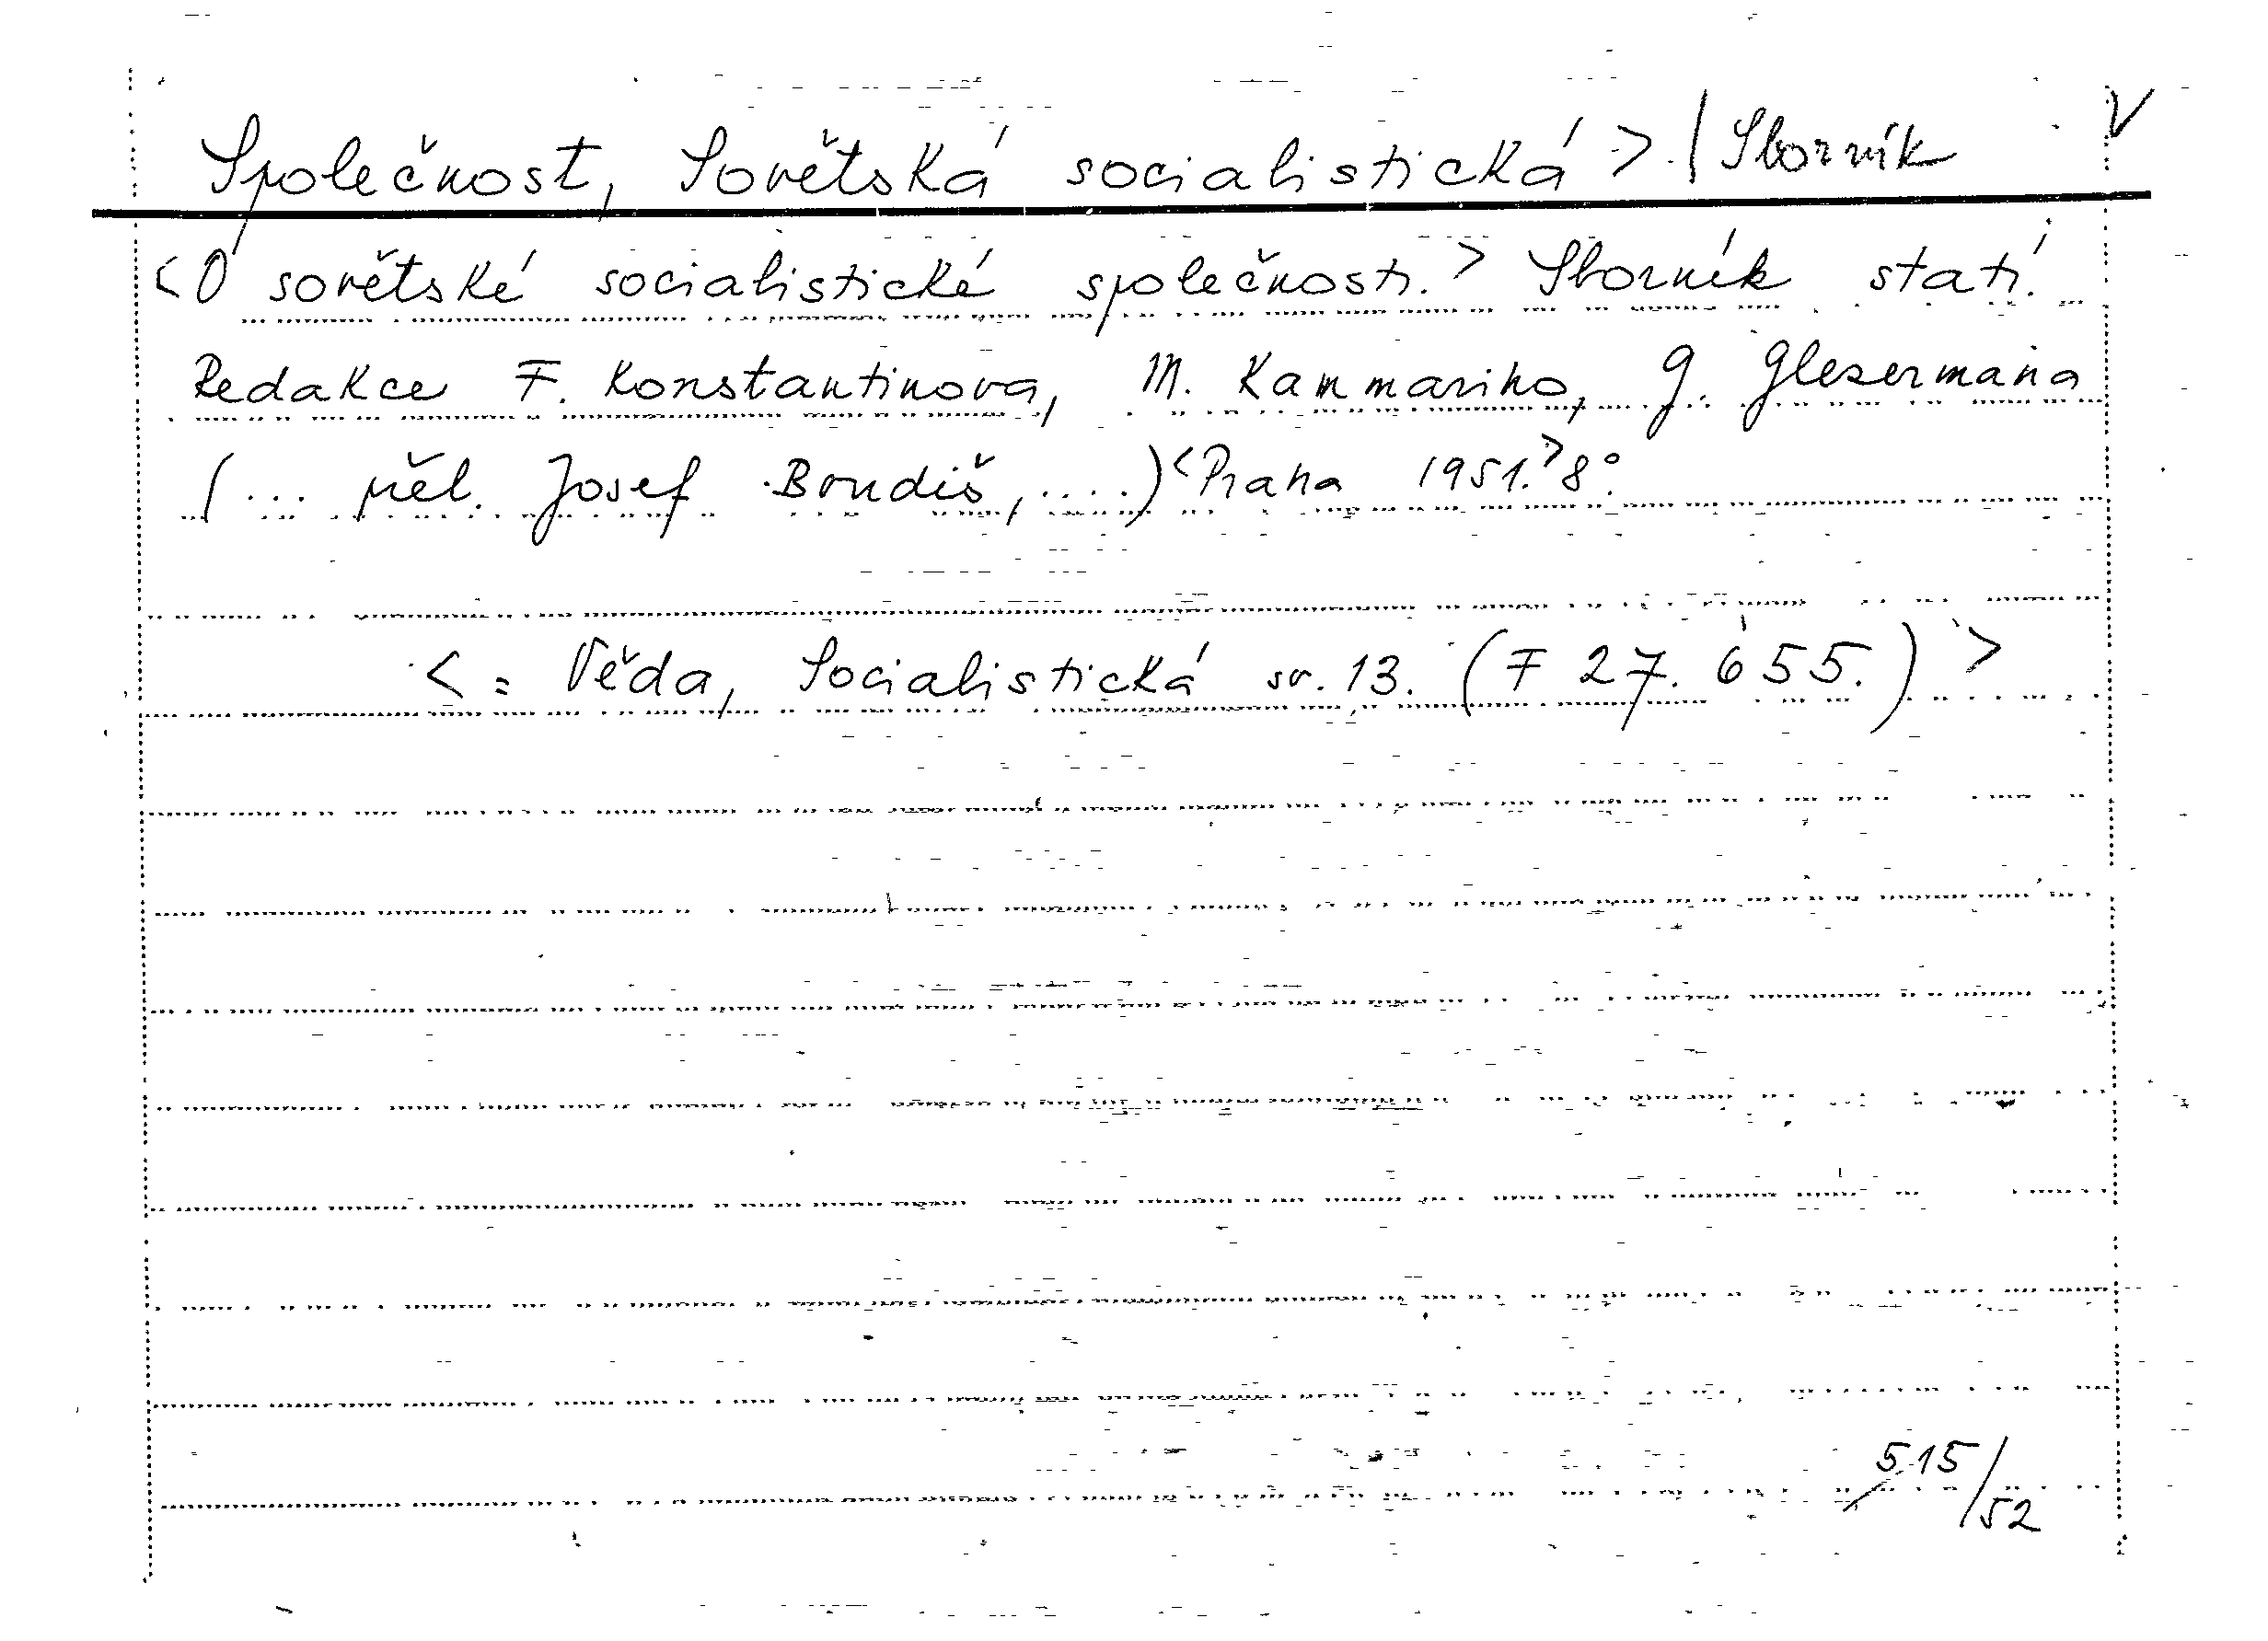 Společnost, Sovětská socialistická > | Sborník V
<O sovětské socialistické společnosti.> Sborník statí.
Redakce F. Konstantinova, M. Kammariho, G. Glezermana
(... přel. Josef Boudiš, ....) <Praha 1951.> 8°.
< = Věda, Socialistická sv. 13. (F 27. 655.) >
515/52